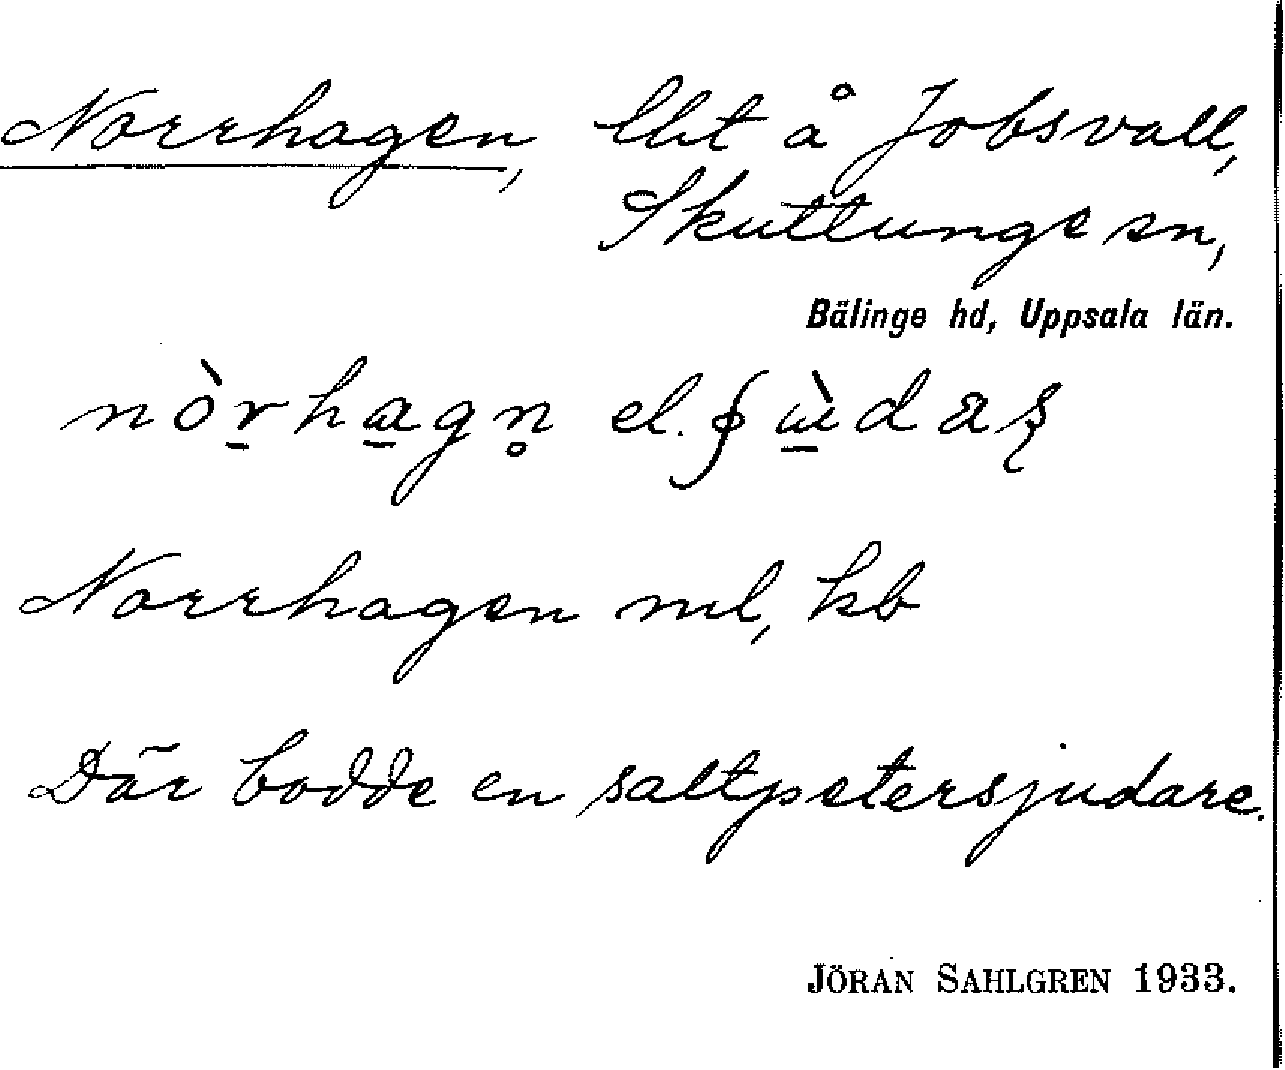 Norrhagen, lht å Jobsvall,
Skuttunge sn,
Bälinge hd, Uppsala län.
el.
Norrhagen ml, kb
Där bodde en saltpetersjudare.
JÖRAN SAHLGREN 1933.